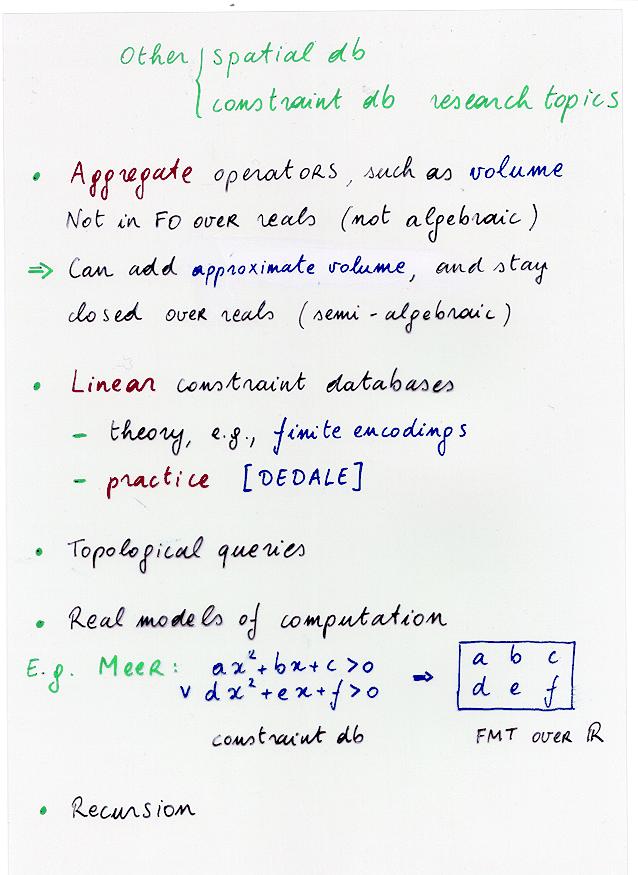 Other { spatial db
constraint db research topics
• Aggregate operators, such as volume
Not in FO over reals (not algebraic)
⇒ Can add approximate volume, and stay
closed over reals (semi-algebraic)
• Linear constraint databases
- theory, e.g., finite encodings
- practice [DEDALE]
• Topological queries
• Real models of computation
E.g. Meer: ax²+bx+c>0 ⇒ a b c
∨ dx²+ex+f>0 d e f
constraint db FMT over ℝ
• Recursion